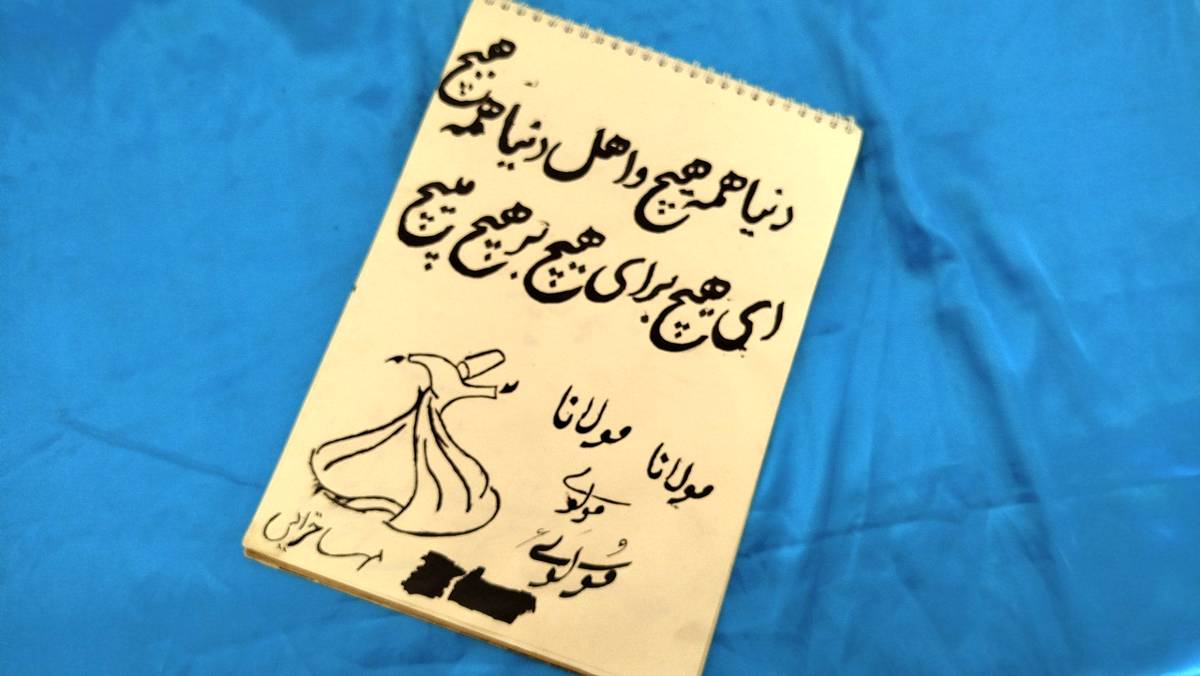 دنیا همه هیچ و اهل دنیا همه هیچ
ای هیچ برای هیچ بر هیچ مپیچ
مولانا
مولانا
مولوی
مولوی
مهسا